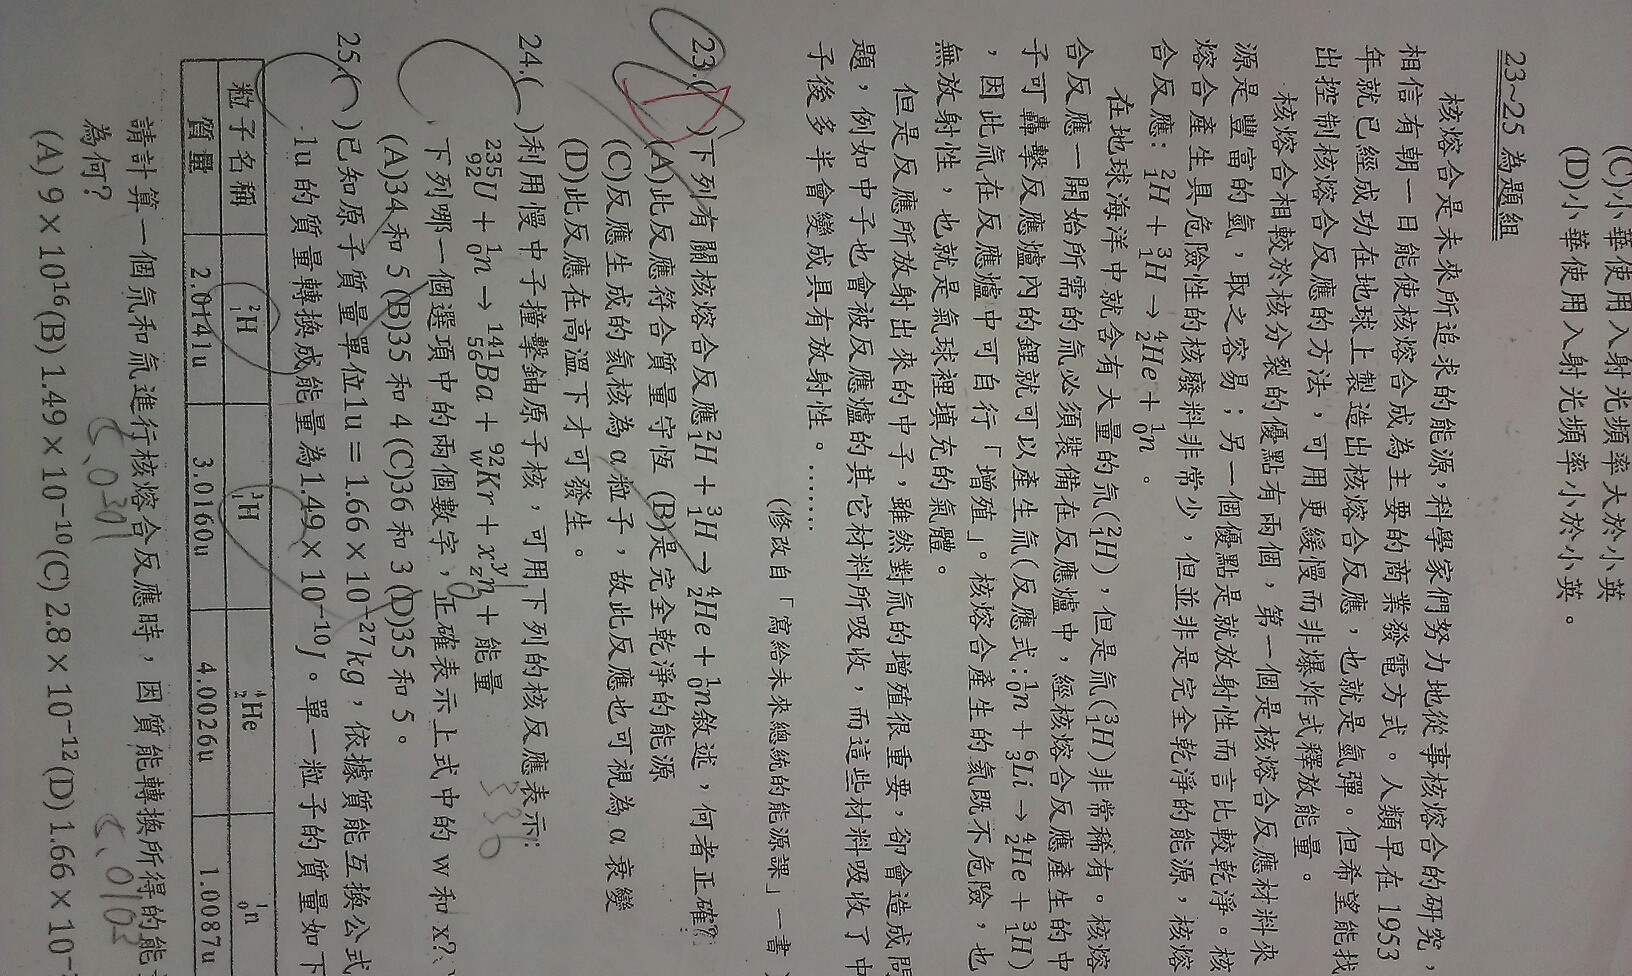 (C)小華使用入射光頻率大於小英
(D)小華使用入射光頻率小於小英。
23~25 為題組
核熔合是未來所追求的能源,科學家們努力地從事核熔合的研究,
相信有朝一日能使核熔合成為主要的商業發電方式。人類早在 1953
年就已經成功在地球上製造出核熔合反應,也就是氫彈。但希望能找
出控制核熔合反應的方法,可用更緩慢而非爆炸式釋放能量。
核熔合相較於核分裂的優點有兩個,第一個是核熔合反應材料來
源是豐富的氫,取之容易;另一個優點是就放射性而言比較乾淨。核
熔合產生具危險性的核廢料非常少,但並非是完全乾淨的能源,核熔
合反應:²₁H + ³₁H → ⁴₂He + ¹₀n 。
在地球海洋中就含有大量的氘(²₁H),但是氚(³₁H)非常稀有。核熔
合反應一開始所需的氚必須裝備在反應爐中,經核熔合反應產生的中
子可轟擊反應爐內的鋰就可以產生氚(反應式:¹₀n + ⁶₃Li → ⁴₂He + ³₁H)
,因此氚在反應爐中可自行「增殖」。核熔合產生的氦既不危險,也
無放射性,也就是氣球裡填充的氣體。
但是反應所放射出來的中子,雖然對氚的增殖很重要,卻會造成問
題,例如中子也會被反應爐的其它材料所吸收,而這些材料吸收了中
子後多半會變成具有放射性。……
(修改自「寫給未來總統的能源課」一書)
23.( )下列有關核熔合反應²₁H + ³₁H → ⁴₂He + ¹₀n敘述,何者正確?
(A)此反應符合質量守恆 (B)是完全乾淨的能源
(C)反應生成的氦核為 α 粒子,故此反應也可視為 α 衰變
(D)此反應在高溫下才可發生。
24.( )利用慢中子撞擊鈾原子核,可用下列的核反應表示:
²³⁵₉₂U + ¹₀n → ¹⁴¹₅₆Ba + ⁹²_wKr + x^y_z n + 能量
下列哪一個選項中的兩個數字,正確表示上式中的 w 和 x?
(A)34 和 5 (B)35 和 4 (C)36 和 3 (D)35 和 5。
336
25.( )已知原子質量單位1u = 1.66 × 10⁻²⁷kg,依據質能互換公式
1u 的質量轉換成能量為1.49 × 10⁻¹⁰J。單一粒子的質量如下
粒子名稱 ²₁H ³₁H ⁴₂He ¹₀n
質量 2.0141u 3.0160u 4.0026u 1.0087u
請計算一個氘和氚進行核熔合反應時,因質能轉換所得的能
為何?
(A) 9 × 10¹⁶(B) 1.49 × 10⁻¹⁰(C) 2.8 × 10⁻¹²(D) 1.66 × 10⁻